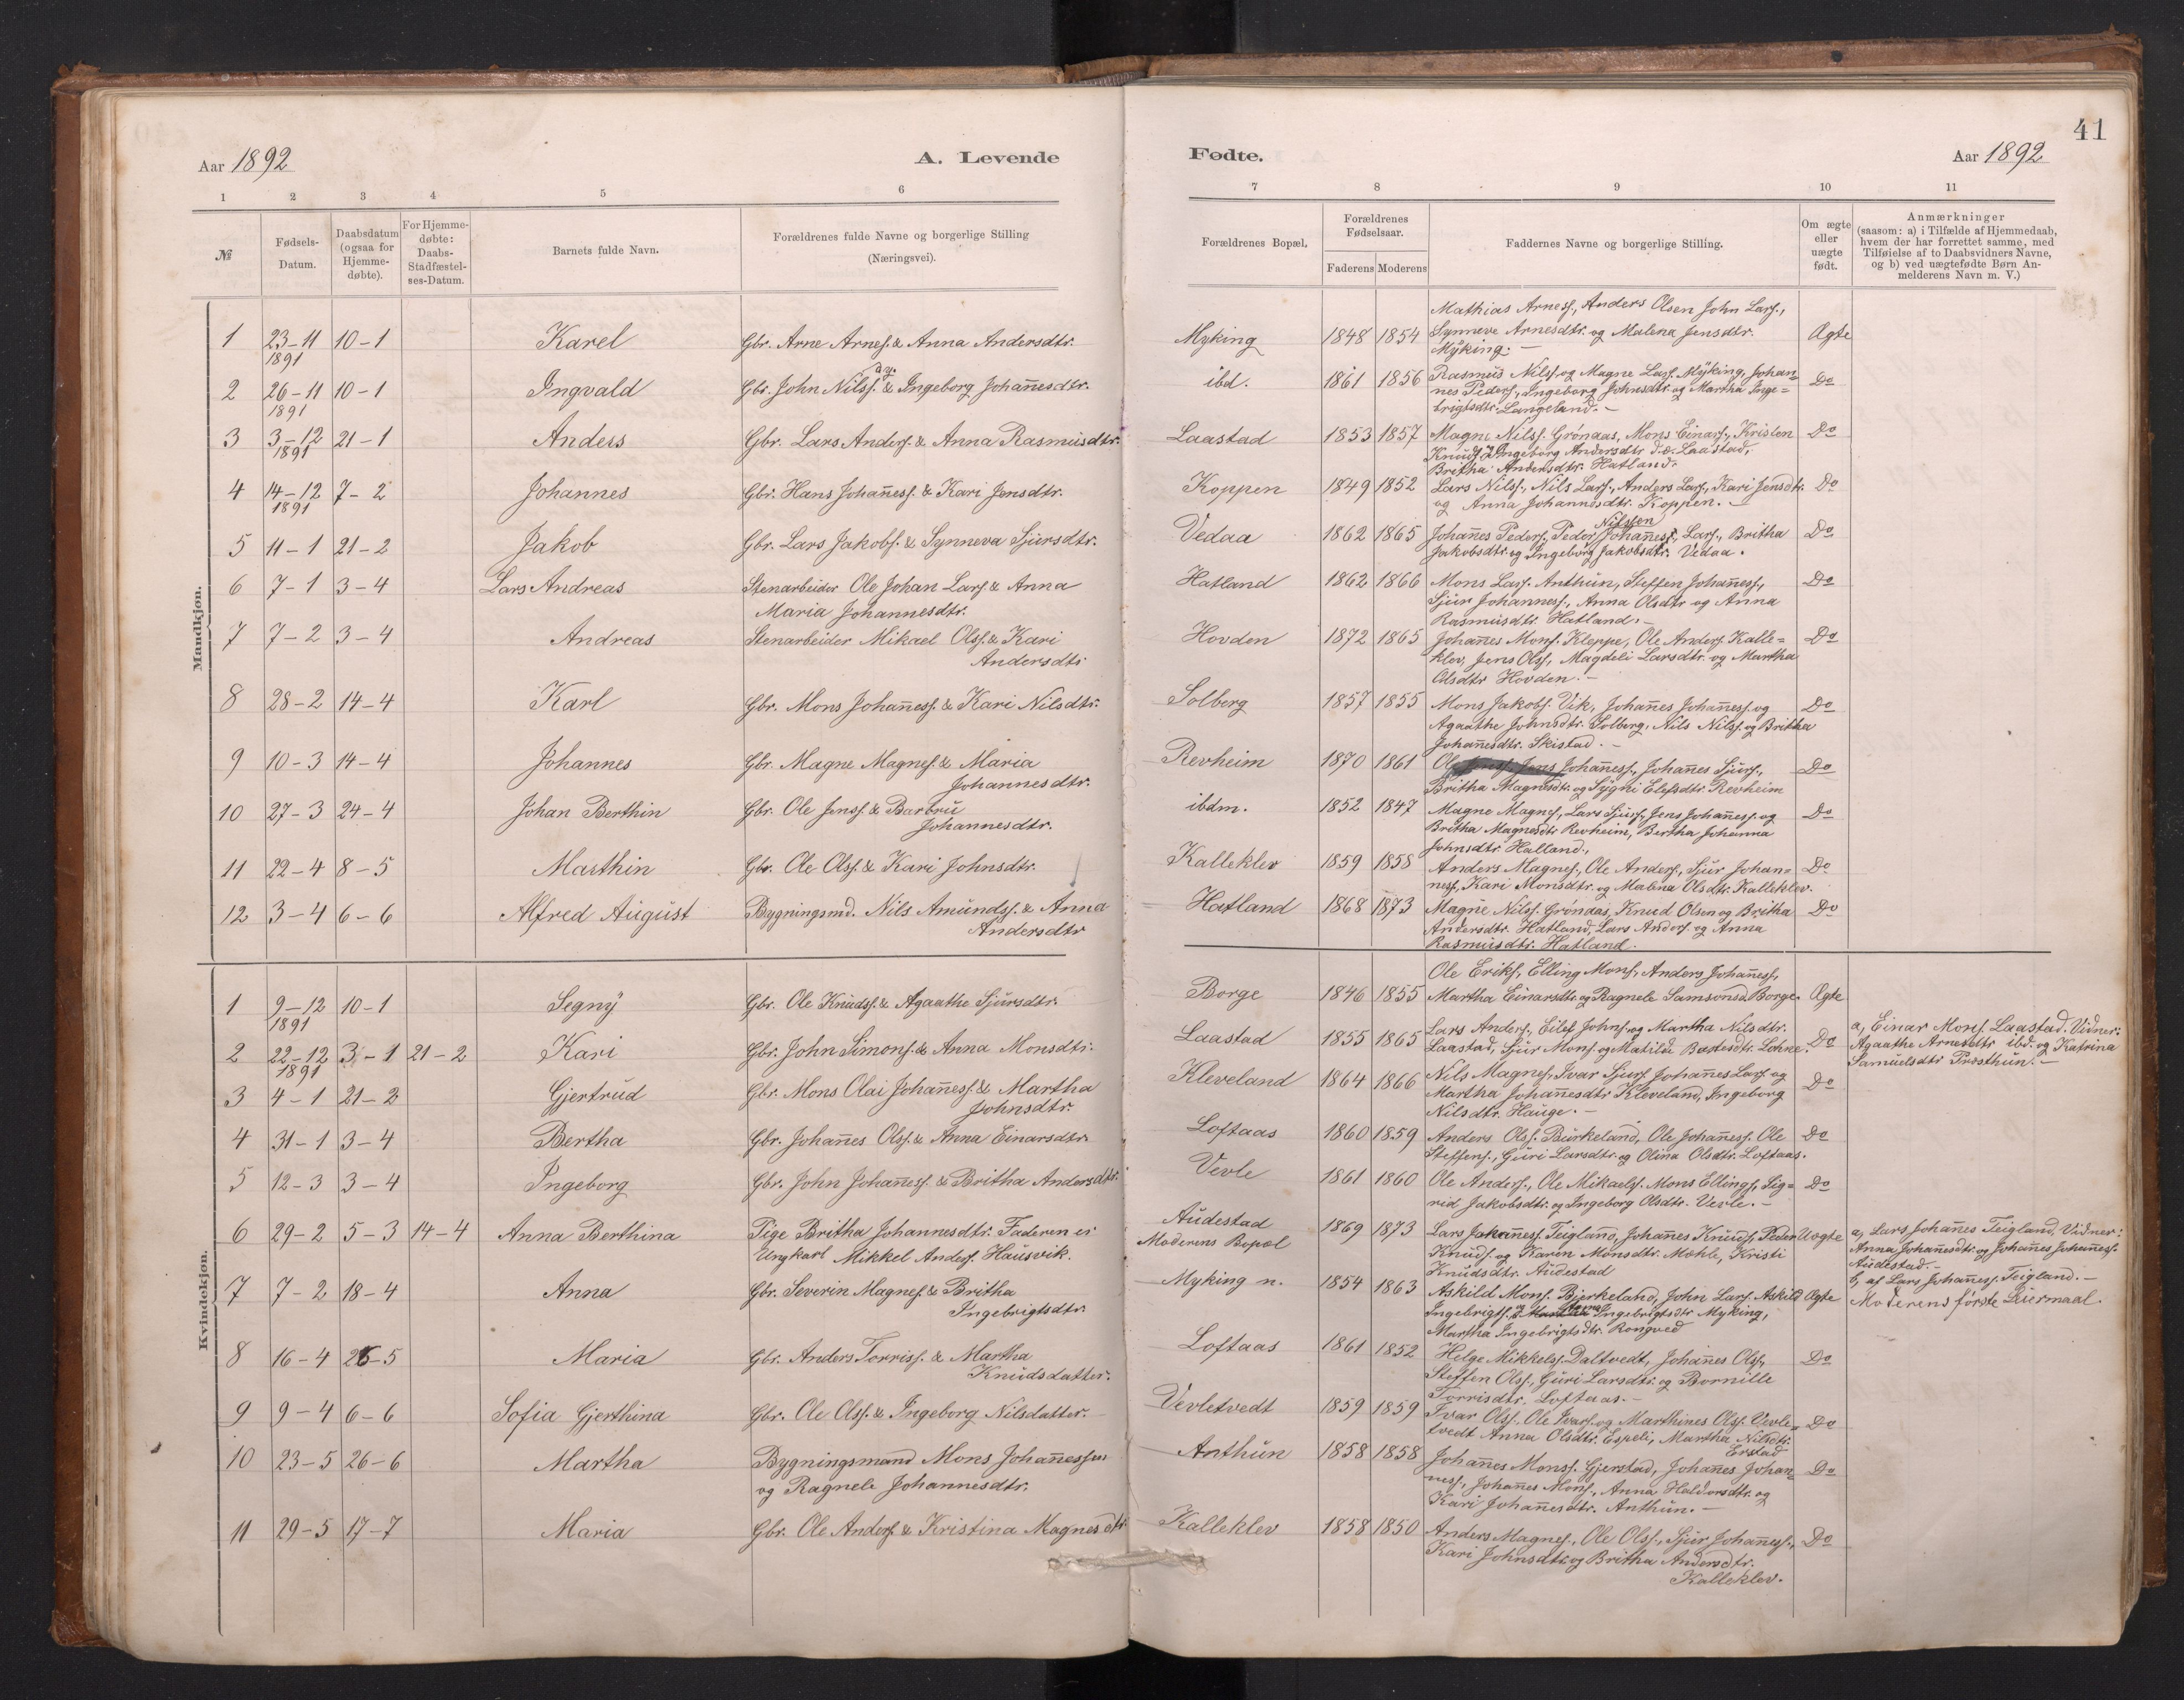 41
Aar 1892
A. Levende
Fødte.
Aar 1892
1 2 3 4 5 6 7 8 9 10 11
№
Fødsels-Datum.
Daabsdatum (ogsaa for Hjemme-døbte).
For Hjemme-døbte: Daabs-Stadfæstel-ses-Datum.
Barnets fulde Navn.
Forældrenes fulde Navne og borgerlige Stilling (Næringsvei).
Forældrenes Bopæl.
Forældrenes Fødselsaar.
Faderens Moderens
Faddernes Navne og borgerlige Stilling.
Om ægte eller uægte født.
Anmærkninger
(saasom: a) i Tilfælde af Hjemmedaab, hvem der har forrettet samme, med Tilføielse af to Daabsvidners Navne, og b) ved uægtefødte Børn An-melderens Navn m. V.)
Mandkjøn.
1 23-11 1891 10-1 Karel Gbr. Arne Arness. & Anna Andersdtr. Myking 1848 1854 Mathias Arness., Anders Olsen John Larss.,
Synneve Arnesdtr. og Malena Jensdtr.
Myking.- Ægte
2 26-11 1891 10-1 Ingvald Gbr. John Nilss. ay. & Ingeborg Johañesdtr. ibd. 1861 1856 Rasmus Nilss. og Magne Larss. Myking, Johan=
nes Peders., Ingeborg Johnsdtr. og Martha Inge=
brigtsdtr. Langeland.- Do
3 3-12 1891 21-1 Anders Gbr. Lars Anders. & Anna Rasmusdtr. Laastad 1853 1857 Magne Nilss. Grónaas, Mons Einars., Kristen
Knuds. Ingeborg Andersdtr d.æ. Laastad,
Britha Andersdtr. Hatland. Do
4 14-12 1891 7-2 Johannes Gbr. Hans Johañess. & Kari Jensdtr. Koppen 1849 1852 Lars Nilss., Nils Larss., Anders Larss., Kari Jensdtr.
og Anna Johannesdtr. Koppen.- Do
5 11-1 21-2 Jakob Gbr. Lars Jakobs. & Synneva Sjursdtr. Vedaa 1862 1865 Johañes Peders., Peder Johañess., Nilssen Larss., Britha
Jakobsdtr. og Ingeborg Jakobsdtr. Vedaa. Do
6 7-1 3-4 Lars Andreas Stenarbeider Ole Johan Larss. & Anna
Maria Johannesdtr. Hatland 1862 1866 Mons Larss. Anthun, Steffen Johañess.,
Sjur Johanness., Anna Olsdtr og Anna
Rasmusdtr. Hatland.- Do
7 7-2 3-4 Andreas Stenarbeider Mikael Olss. & Kari
Andersdtr Hovden 1872 1865 Johañes Mons. Kleppe, Ole Anders. Kalle=
klev, Jens Olss., Magdeli Larsdtr. og Martha
Olsdtr Hovden.- Do
8 28-2 14-4 Karl Gbr. Mons Johañess. & Kari Nilsdtr. Solberg 1857 1855 Mons Jakobs. Vik, Johañes Johañess. og
Agaathe Johnsdtr. Solberg, Nils Nilss. og Britha
Johañesdtr. Skistad.- Do
9 10-3 14-4 Johannes Gbr. Magne Magness. & Maria
Johannesdtr. Revheim 1870 1861 Jens Johañess., Johañes Sjurs.,
Britha Magnesdtr. og Sygni Elefsdtr. Revheim Do
10 27-3 24-4 Johan Berthin Gbr. Ole Jenss. & Barbru
Johannesdtr. ibdm. 1852 1847 Magne Magness., Lars Sjurs., Jens Johañess. og
Britha Magnesdtr Revheim, Bertha Johanna
Johnsdtr. Halland., Do
11 22-4 8-5 Marthin Gbr. Ole Olss. & Kari Johnsdtr. Kalleklev 1859 1858 Anders Magness., Ole Anders., Sjur Johan=
ness., Kari Monsdtr. og Malena Olsdtr. Kalleklev. Do
12 3-4 6-6 Alfred August Bygningsmd. Nils Amunds. & Anna
Andersdtr Hatland 1868 1873 Magne Nilss. Grónaas, Knud Olsen og Britha
Andersdtr. Hatland, Lars Anders. og Anna
Rasmusdtr. Hatland. Do
Kvindekjøn.
1 9-12 1891 10-1 Segny Gbr. Ole Knuds. & Agaathe Sjursdtr. Borge 1846 1855 Ole Eriks., Elling Mons., Anders Johañess.,
Martha Einarsdtr. og Ragnele Samsonsd. Borge. Ægte
2 22-12 1891 3-1 21-2 Kari Gbr. John Simons. & Anna Monsdtr. Laastad 1855 1865 Lars Anders., Eilef Johns. og Martha Nilsdtr.
Laastad, Sjur Mons. og Matilde Lohne. Do a, Einar Mons. Laastad. Vidner:
Agaathe Arnesdtr ibd. og Katrina
Samuelsdtr Præsthun.-
3 4-1 21-2 Gjertrud Gbr. Mons Olai Johañess. & Martha
Johnsdtr. Kleveland 1864 1866 Nils Magness., Ivar Sjurs. Johañes Larss. og
Martha Johañesdtr Kleveland, Ingeborg
Nilsdtr. Hauge.- Do
4 31-1 3-4 Bertha Gbr. Johañes Olss. & Anna Einarsdtr. Loftaas 1860 1859 Anders Olss. Burkeland, Ole Johañess. Ole
Steffens., Guri Larsdtr. og Olina Olsdtr. Loftaas. Do
5 12-3 3-4 Ingeborg Gbr. John Johañess. & Britha Andersdtr. Vevle 1861 1860 Ole Anders., Ole Mikaels. Mons Ellings., Sig=
rid Jakobsdtr. og Ingeborg Olsdtr. Vevle.- Do
6 29-2 5-3 14-4 Anna Berthina Pige Britha Johannesdtr. Faderen er
Ungkarl Mikkel Anders. Hausvik. Audestad
Moderens Bopæl 1869 1873 Lars Johañess. Teigland, Johañes Knuds., Peder
Knuds. og Karen Monsdtr. Mæhle, Kristi
Knudsdtr. Audestad Uægte a, Lars Johañes Teigland, Vidner:
Anna Johañesdtr. og Johañes Johañess.
Audestad.-
b, af Lars Johañess. Teigland.-
Moderens første Leiermaal.
7 7-2 18-4 Anna Gbr. Severin Magness. & Britha
Ingebrigtsdtr. Myking n. 1854 1863 Askild Mons. Bjerkeland, John Larss. Askild
Ingebrigts. Ingebrigtsdtr Myking,
Martha Ingebrigtsdtr. Rongved Ægte
8 16-4 26-5 Maria Gbr. Anders Torriss. & Martha
Knudsdatter. Loftaas 1861 1852 Helge Mikkels. Daltvedt, Johañes Olss.,
Steffen Olss., Guri Larsdtr. og Bornille
Torrisdtr. Loftaas.- Do
9 9-4 6-6 Sofia Gjerthina Gbr. Ole Olss. & Ingeborg Nilsdatter. Vevletvedt 1859 1859 Ivar Olss., Ole Ivars. og Marthines Olss. Vevle=
tvedt Anna Olsdtr. Espeli, Martha Nilsdtr.
Erstad Do
10 23-5 26-6 Martha Bygningsmand Mons Johañessen
og Ragnele Johannesdtr. Anthun 1858 1858 Johañes Monss. Gjerstad, Johañes Johan=
ness., Johañes Mons., Anna Haldorsdtr. og
Kari Johañesdtr. Anthun.- Do
11 29-5 17-7 Maria Gbr. Ole Anders. & Kristina Magnesdtr. Kalleklev 1858 1850 Anders Magness., Ole Olss., Sjur Johañess.,
Kari Johnsdtr. og Britha Andersdtr.
Kalleklev. Do